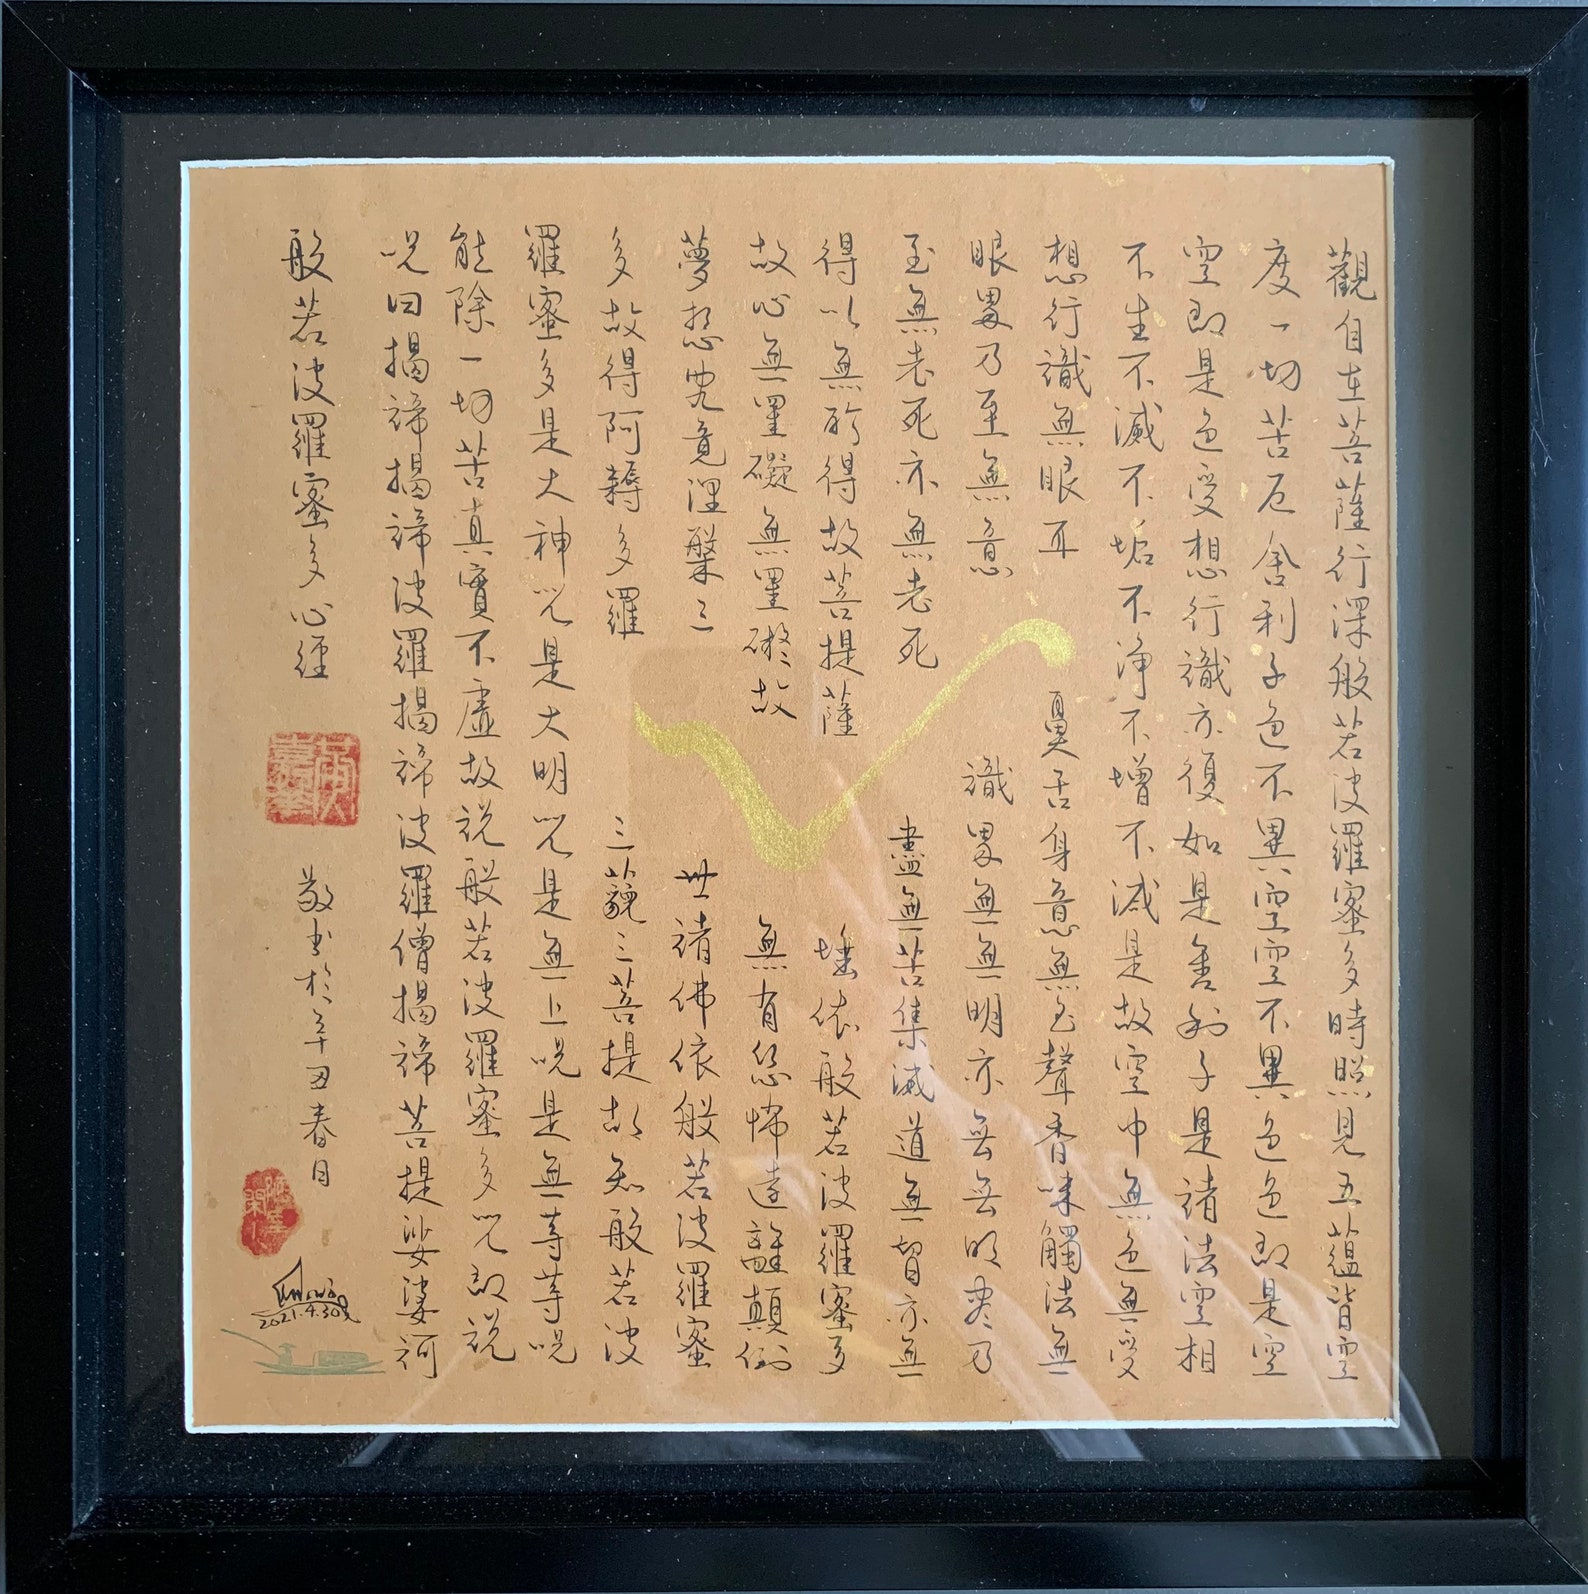 觀自在菩薩行深般若波羅蜜多時照見五蘊皆空
度一切苦厄舍利子色不異空空不異色色即是空
空即是色受想行識亦復如是舍利子是諸法空相
不生不滅不垢不淨不增不減是故空中無色無受
想行識無眼耳鼻舌身意無色聲香味觸法無
眼界乃至無意識界無無明亦無無明盡乃
至無老死亦無老死盡無苦集滅道無智亦無
得以無所得故菩提薩埵依般若波羅蜜多
故心無罣礙無罣礙故無有恐怖遠離顛倒
夢想究竟涅槃三世諸佛依般若波羅蜜
多故得阿耨多羅三藐三菩提故知般若波
羅蜜多是大神咒是大明咒是無上呪是無等等呪
能除一切苦真實不虛故說般若波羅蜜多咒即說
呪曰揭諦揭諦波羅揭諦波羅僧揭諦菩提娑婆訶
般若波羅蜜多心經
敬書於辛丑春月
2021.4.30